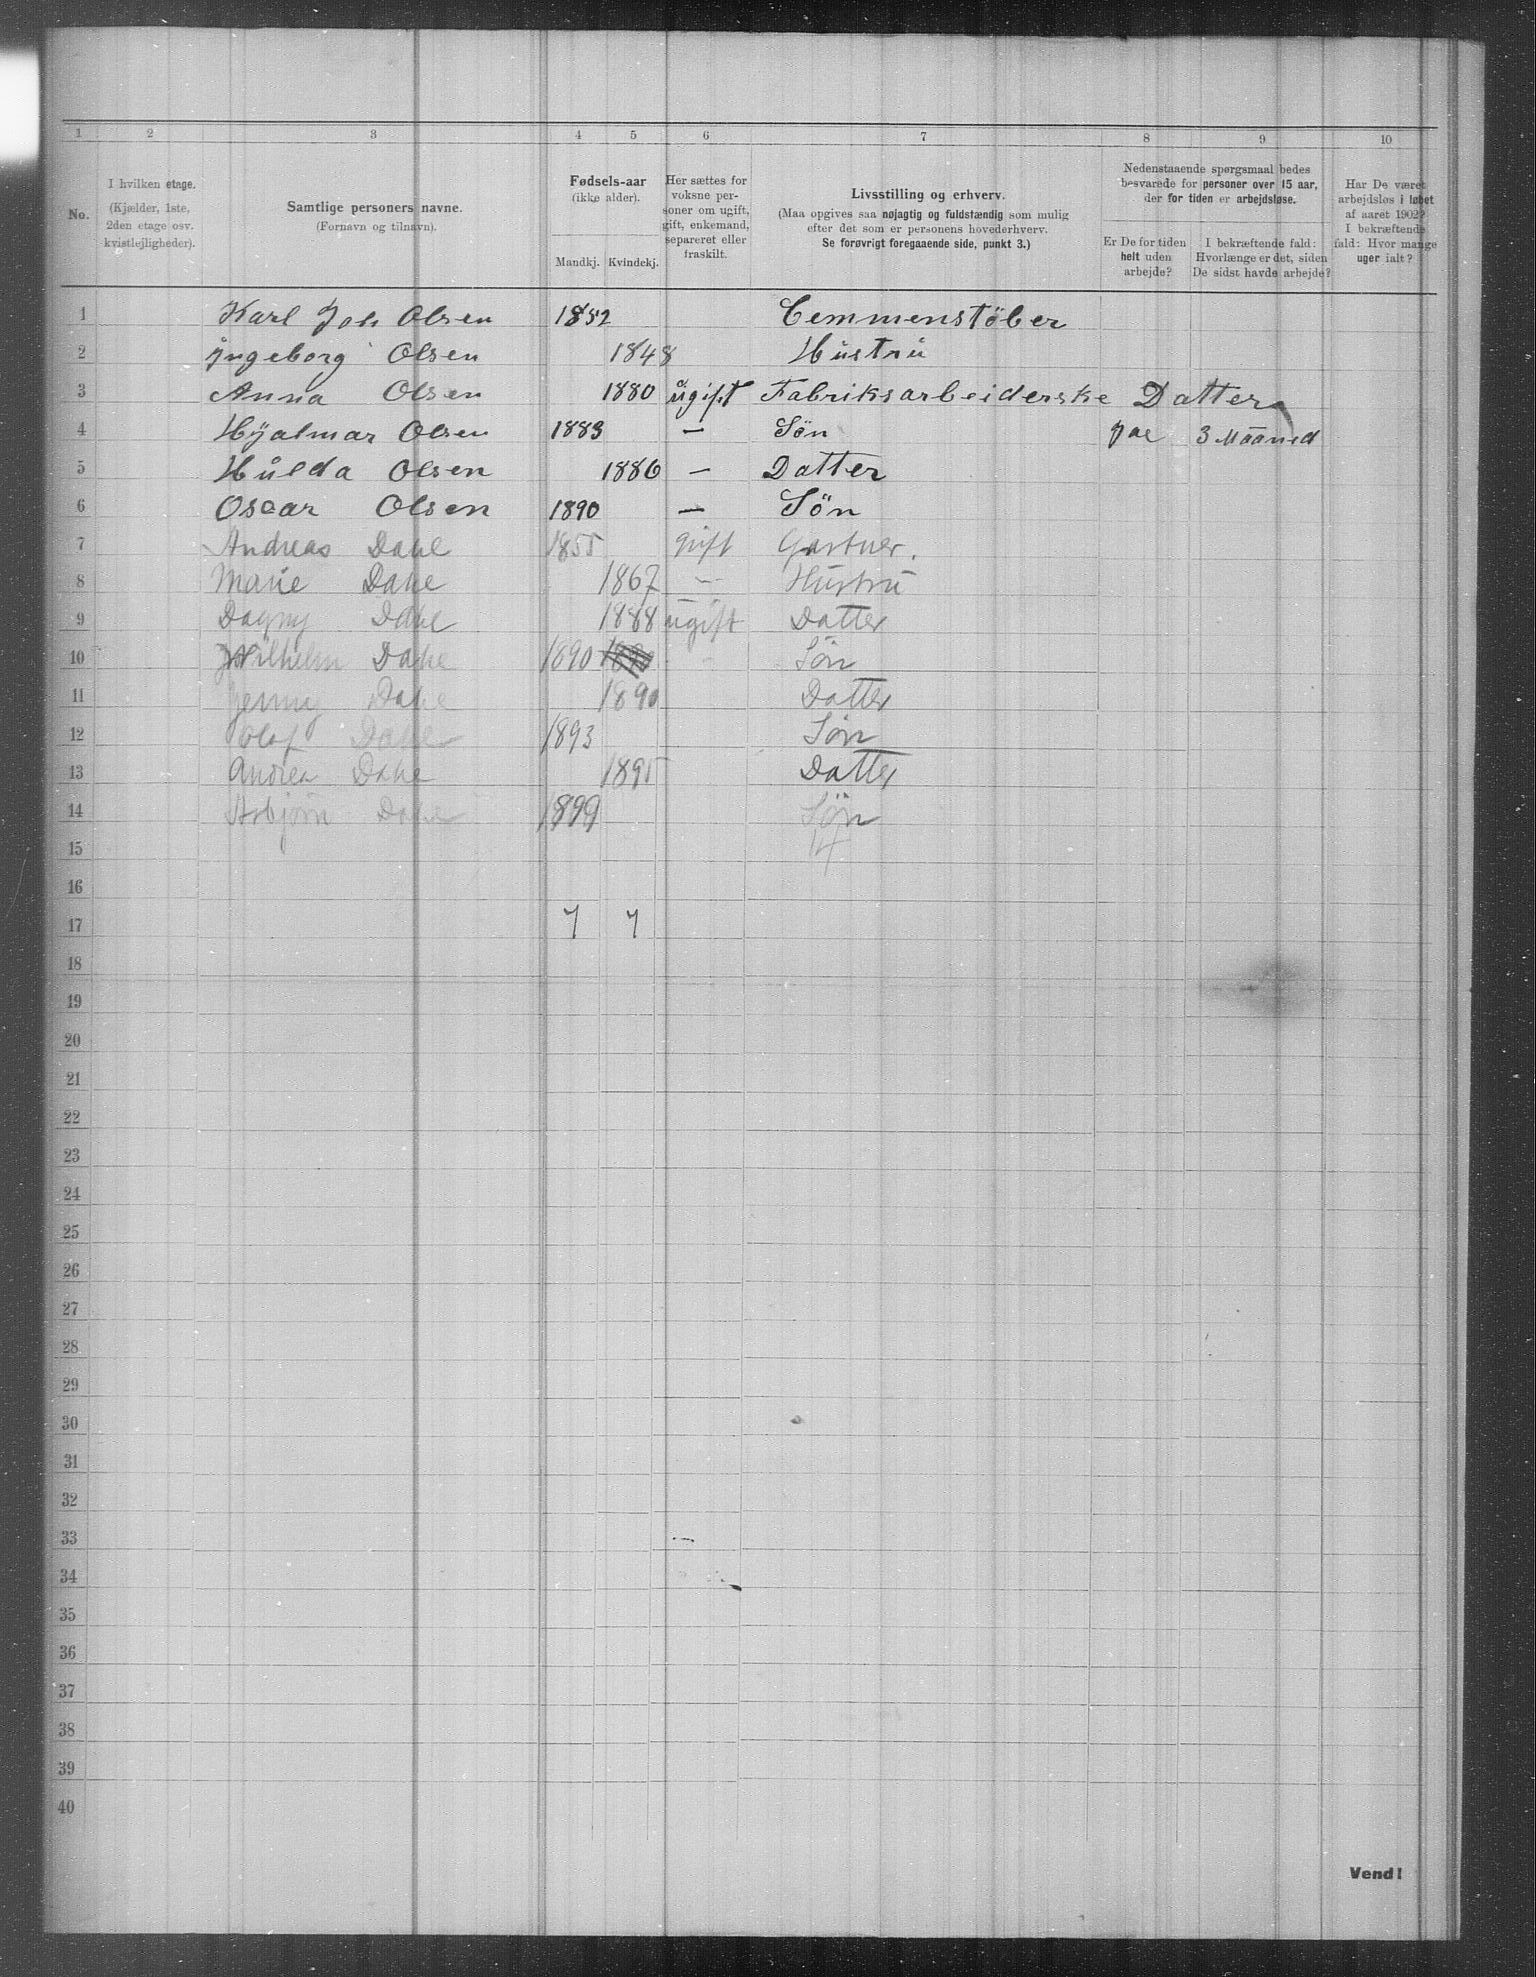 1 2 3 4 5 6 7 8 9 10
No.
I hvilken etage.
(Kjælder, 1ste,
2den etage osv.
kvistlejligheder).
Samtlige personers navne.
(Fornavn og tilnavn).
Fødsels-aar
(ikke alder).
Mandkj. Kvindekj.
Her sættes for
voksne per-
soner om ugift,
gift, enkemand,
separeret eller
fraskilt.
Livsstilling og erhverv.
(Maa opgives saa nøjagtig og fuldstændig som mulig
efter det som er personens hovederhverv.
Se forøvrigt foregaaende side, punkt 3.)
Nedenstaaende spørgsmaal bedes
besvarede for personer over 15 aar,
der for tiden er arbejdsløse.
Er De for tiden
helt uden
arbejde?
I bekræftende fald:
Hvorlænge er det, siden
De sidst havde arbejde?
Har De været
arbejdsløs i løbet
af aaret 1902?
I bekræftende
fald: Hvor mange
uger ialt?
1 Karl Joh Olsen 1852 Cemmenstöber
2 Ingeborg Olsen 1848 Hustru
3 Anna Olsen 1880 ugift Fabriksarbeiderske Datter
4 Hjalmar Olsen 1883 — Søn Jae 3 Maaned
5 Hulda Olsen 1886 — Datter
6 Oscar Olsen 1890 — Søn
7 Andreas Dahl 1855 gift Gartner.
8 Marie Dahl 1867 — Hustru
9 Dagny Dahl 1888 ugift Datter
10 Wilhelm Dahl 1890 Søn
11 Jenny Dahl 1890 Datter
12 Olaf Dahl 1893 Søn
13 Andrea Dahl 1895 Datter
14 Asbjørn Dahl 1899 Søn
15
16
17 7 7
18
19
20
21
22
23
24
25
26
27
28
29
30
31
32
33
34
35
36
37
38
39
40
Vend!